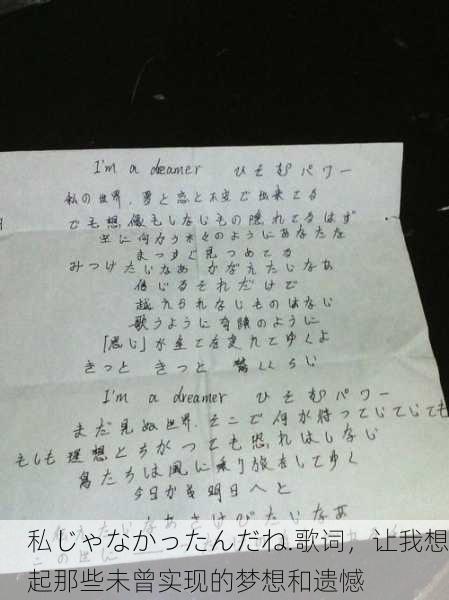 I'm a dreamer ひそむパワー
私の世界. 夢と恋と不安で出来てる
でも想像もしないもの隠れてるはず
空に向かう木々のようにあなたを
まっすぐ見つめてる
みつけたいなあ かなえたいなあ
信じるそれだけで
越えられないものはない
歌うように奇険のように
「思い」が全てを変えてゆくよ
きっと きっと 驚くくらい
I'm a dreamer ひそむパワー
まだ見ぬ世界. そこで何が待っていていても
もしも理想とちがっても恐れはしない
鳥たちは風に乗り旅をしてゆく
今日から明日へと
たいなあさけびたいなあ
この世に
私じゃなかったんだね.歌词，让我想
起那些未曾实现的梦想和遗憾